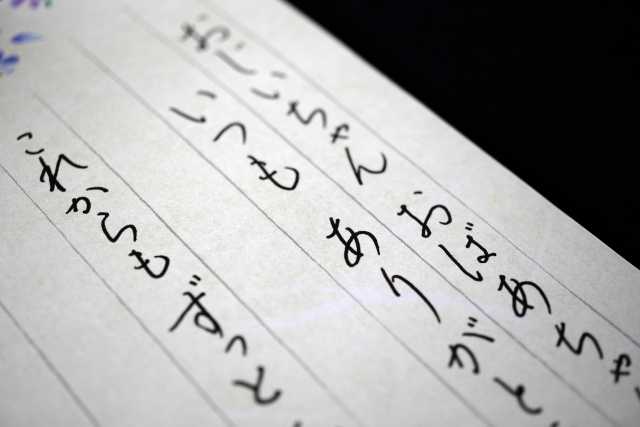 おじいちゃん おばあちゃ
いつも ありがと
これからも ずっと